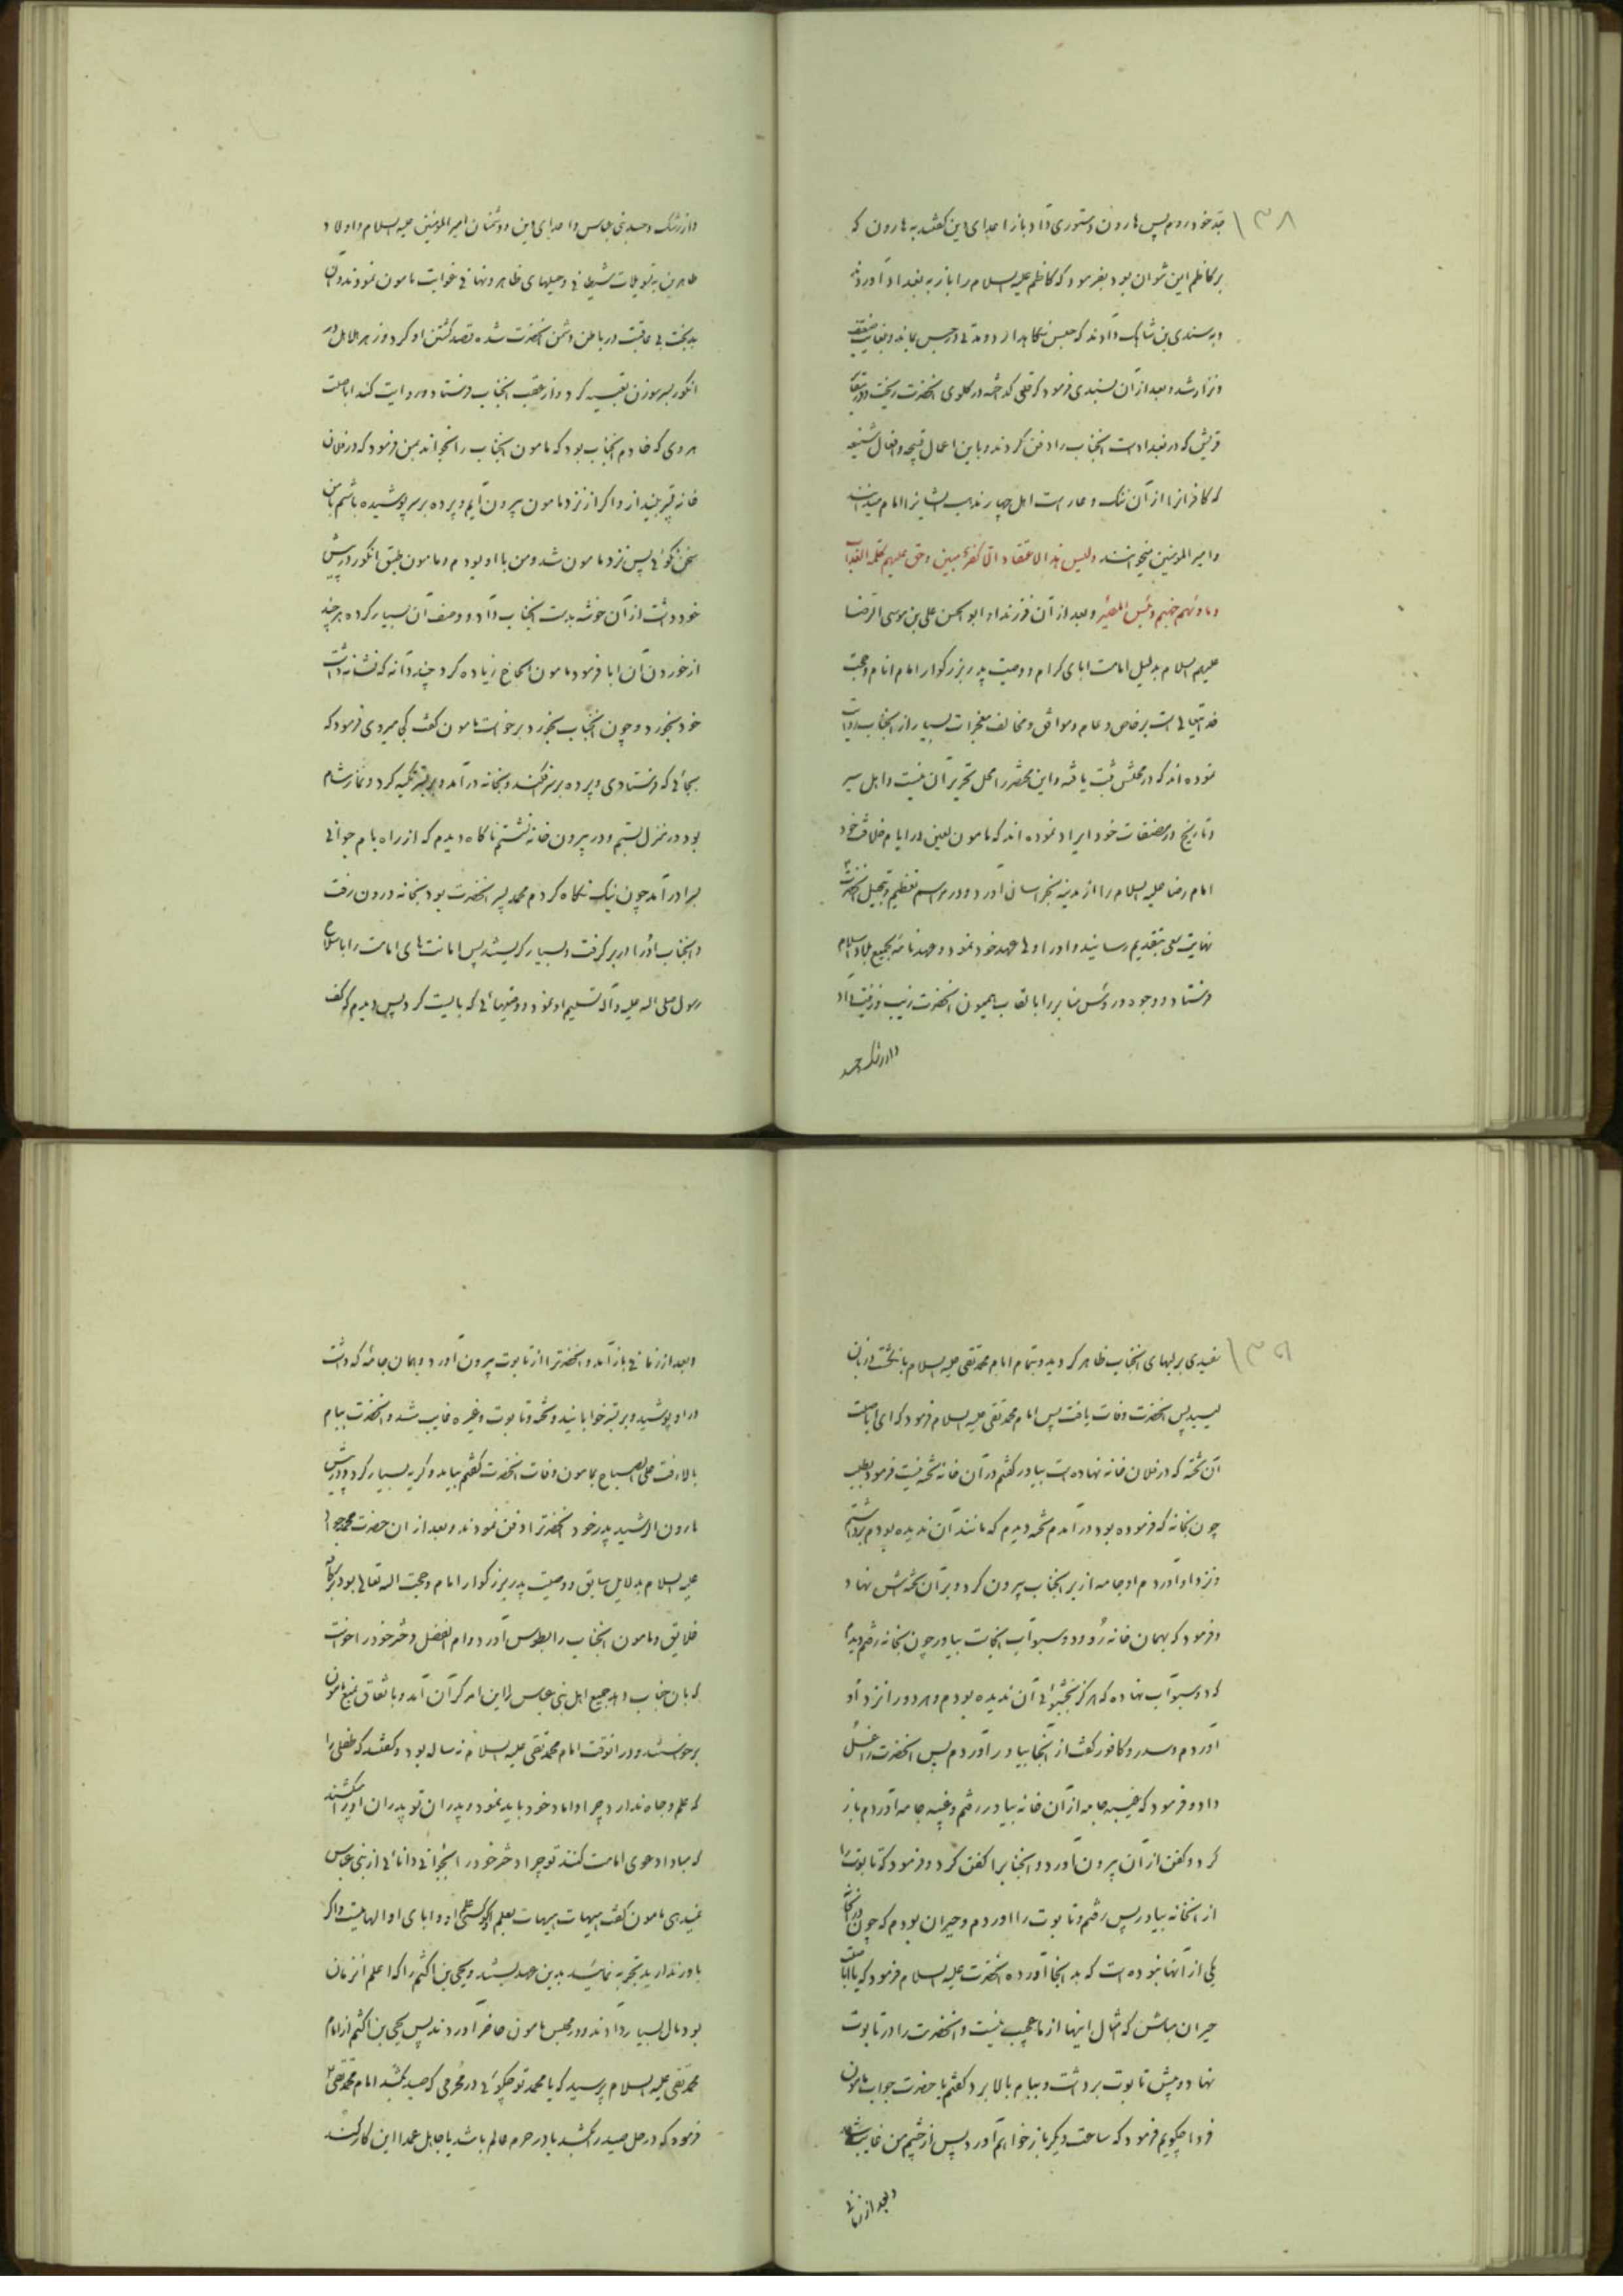 ۱۳۸
جد خود روم پس هارون دستوری داد باز اعدای دین گفتند به هارون که
بر کاظم این شوان بود بفرمود که کاظم علیه السلام را باز به بغداد آوردند
و به سندی بن شاهک دادند که حبس نگاهدارد و مدتی در حبس بماند و بغایت ضعیف
و نزار شد و بعد از آن سندی فرمود که قلعی گداخته در گلوی آنحضرت ریخت و در مقابر
قریش که در بغداد است آنجناب را دفن کردند و با این اعمال قبیحه و افعال شنیعه
که کافرانرا از آن ننگ و عار است اهل چهار مذهب ایشانرا امام میدانند
و امیر المومنین میخوانند و لیس هذا الاعتقاد الا کفر مبین و حق علیهم کلمة العذاب
و ماویهم جهنم و بئس المصیر و بعد از آن فرزند او ابو الحسن علی بن موسی الرضا
علیهم السلام بدلیل امامت ابای کرام و وصیت پدر بزرگوار امام انام و حجت
خدایتعالی است بر خاص و عام و موافق و مخالف معجزات بسیار از آنجناب روایت
نموده اند که در محلش ثبت یافته و این مختصر را محل تحریر آن نیست و اهل سیر
و تاریخ در مصنفات خود ایراد نموده اند که مامون لعین در ایام خلافت خود
امام رضا علیه السلام را از مدینه بخراسان آورد و در مراسم تعظیم و تبجیل آنحضرت
نهایت سعی بتقدیم رسانید و او را ولی عهد خود نمود و عهدنامه بجمیع بلاد اسلام
فرستاد و وجوه و رؤس منابر را بالقاب همیون آنحضرت زیب و زینت داد
و از رشک و حسد
و از رشک و حسد بنی عباس و اعدای دین و دشمنان امیر المومنین علیه السلام و اولاد
طاهرین به تسویلات شیطانی و حیلهای ظاهر و نهانی غوایت مامون نمودند و آن
بدبخت بی عاقبت در باطن دشمن آنحضرت شده قصد کشتن او کرد و زهر هلاهل در
انگور بسر سوزن تعبیه کرد و از عقب آنجناب فرستاد و روایت کند اباصلت
هروی که خادم آنجناب بود که مامون آنجناب را بخواند بمن فرمود که در فلان
خانه قبر بیندازد و اگر از نزد مامون بیرون آیم و پرده بر سر پوشیده باشم با من
سخن نگوئی پس نزد مامون شد و من با او بودم و مامون طبق انگور در پیش
خود داشت از آن خوشه بدست آنجناب داد و وصف آن بسیار کرد هر چند
از خوردن آن ابا فرمود مامون الحاح زیاده کرد چند دانه که نشانه داشت
خود بخورد و چون آنجناب بخورد برخواست مامون گفت کجا میروی فرمود که
بجائی که فرستادی و پرده بر سر افکند و بخانه در آمد و بر بستر تکیه کرد و نماز شام
بود در منزل بستم و در بیرون خانه نشستم ناگاه دیدم که از راه بام جوانی
بسرا در آمد چون نیک نگاه کردم محمد پسر آنحضرت بود بخانه درون رفت
و آنجناب او را در بر گرفت و بسیار گریستند پس امانت های امامت را با سلاح
رسول صلی الله علیه و آله تسلیم او نمود و وصیتهائی که بایست کرد پس دیدم که کف
۱۳۹
سفیدی بر لبهای آنجناب ظاهر گردید و بتمام امام محمد تقی علیه السلام بانگشت و زبان
لیسید پس آنحضرت وفات یافت پس امام محمد تقی علیه السلام فرمود که ای اباصلت
آن تخته که در فلان خانه نهاده است بیاور گفتم در آن خانه تخته نیست فرمود بطلب
چون بخانه که فرموده بود در آمدم تخته دیدم که مانند آن ندیده بودم برداشتم
و نزد او آوردم او جامه از بر آنجناب بیرون کرد و بر آن تخته اش نهاد
و فرمود که بهمان خانه رو و دو سبو آب آنجاست بیاور چون بخانه رفتم دیدم
که دو سبو آب نهاده که هرگز بخوبی آن ندیده بودم و هر دو را نزد او
آوردم و سدر و کافور گفت از آنجا بیاور آوردم پس آنحضرت را غسل
داد و فرمود که غیبه جامه از آن خانه بیاور رفتم و غیبه جامه آوردم باز
کرد و کفن از آن بیرون آورد و آنجنابرا کفن کرد و فرمود که تابوت را
از آنخانه بیاور پس رفتم و تابوت را آوردم و حیران بودم که چون در آنخانه
یکی از آنها نبوده است که بدانجا آورده آنحضرت علیه السلام فرمود که یا اباصلت
حیران مباش که امثال اینها از ما عجیب نیست و آنحضرت را در تابوت
نهاد و پیش تابوت برداشت و ببام بالا برد گفتم یا حضرت جواب مامون
فردا چگویم فرمود که ساعت دیگر باز خواهم آورد پس از چشم من غایب شد
و بعد از زمانی
و بعد از زمانی باز آمد و آنحضرترا از تابوت بیرون آورد و همان جامه که داشت
در او پوشید و بر بستر خوابانید و تخته و تابوت و غیره غایب شد و آنحضرت ببام
بالا رفت علی الصباح بمامون وفات آنحضرت گفتم بیامد و گریه بسیار کرد و در پیش
هارون الرشید پدر خود آنحضرترا دفن نمودند و بعد از آن حضرت محمد جواد
علیه السلام بدلایل سابق و وصیت پدر بزرگوار امام و حجت الله تعالی بود بر کافه
خلایق و مامون آنجناب را بطوس آورد و ام الفضل دختر خود را خواست
که بان جناب دهد جمیع اهل بنی عباس را این امر گران آمد و باتفاق بمنع مامون
برخواستند و در آنوقت امام محمد تقی علیه السلام نه ساله بود و گفتند که طفلی را
که علم و جاه ندارد چرا داماد خود باید نمود و پدران تو پدران او را میکشتند
که مبادا دعوی امامت کنند تو چرا دختر خود را بجوانی دانائی از بنی عباس
نمیدهی مامون گفت هیهات هیهات بعلم او کسی او و ابای او الهامیست و اگر
باور ندارید تجربه نمائید بدین عهد بستند و یحیی بن اکثم را که اعلم آنزمان
بود مال بسیار دادند و در مجلس مامون حاضر آوردند پس یحیی بن اکثم از امام
محمد تقی علیه السلام پرسید که یا محمد تو چگوئی در محرمی که صید بکشد امام محمد تقی
فرمود که در حل صید را بکشد یا در حرم عالم باشد یا جاهل عمدا این کار کند